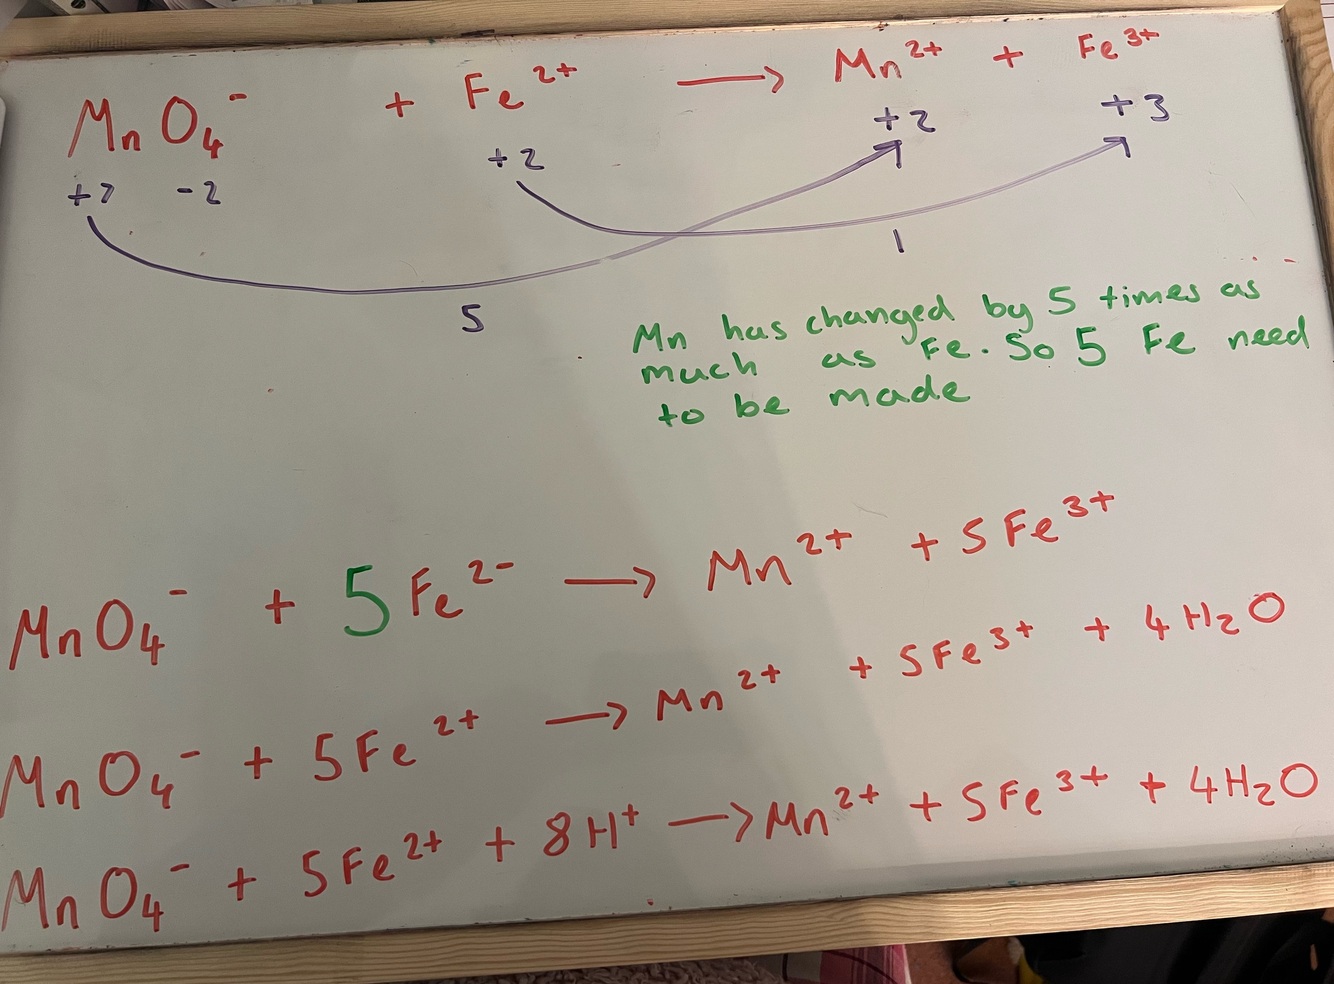 MnO₄⁻ + Fe²⁺ → Mn²⁺ + Fe³⁺
+7 -2 +2 +2 +3
5 1
Mn has changed by 5 times as
much as Fe. So 5 Fe need
to be made
MnO₄⁻ + 5Fe²⁻ → Mn²⁺ + 5Fe³⁺
MnO₄⁻ + 5Fe²⁺ → Mn²⁺ + 5Fe³⁺ + 4H₂O
MnO₄⁻ + 5Fe²⁺ + 8H⁺ → Mn²⁺ + 5Fe³⁺ + 4H₂O